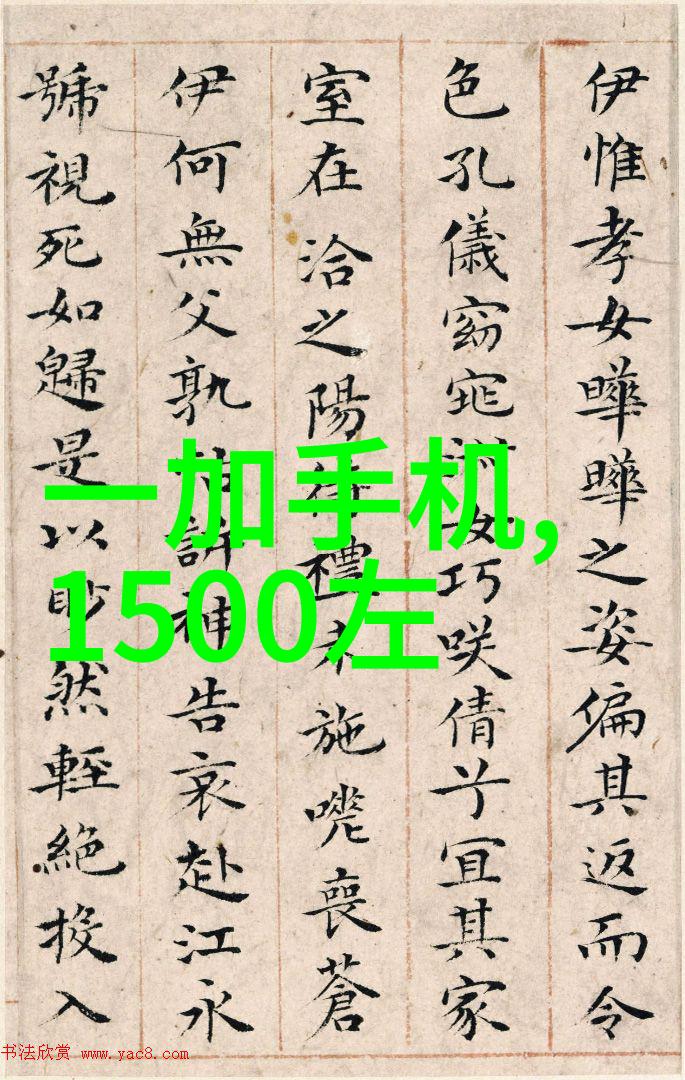 伊惟孝女曄曄之姿偏其返而令
色孔儀窈窕淑女巧咲倩兮宜其家
室在洽之陽待禮未施嗟喪蒼
伊何無父孰怙訴神告哀赴江永
號視死如歸是以眇然輕絕投入
一加手机,
1500左
书法欣赏 www.yac8.com